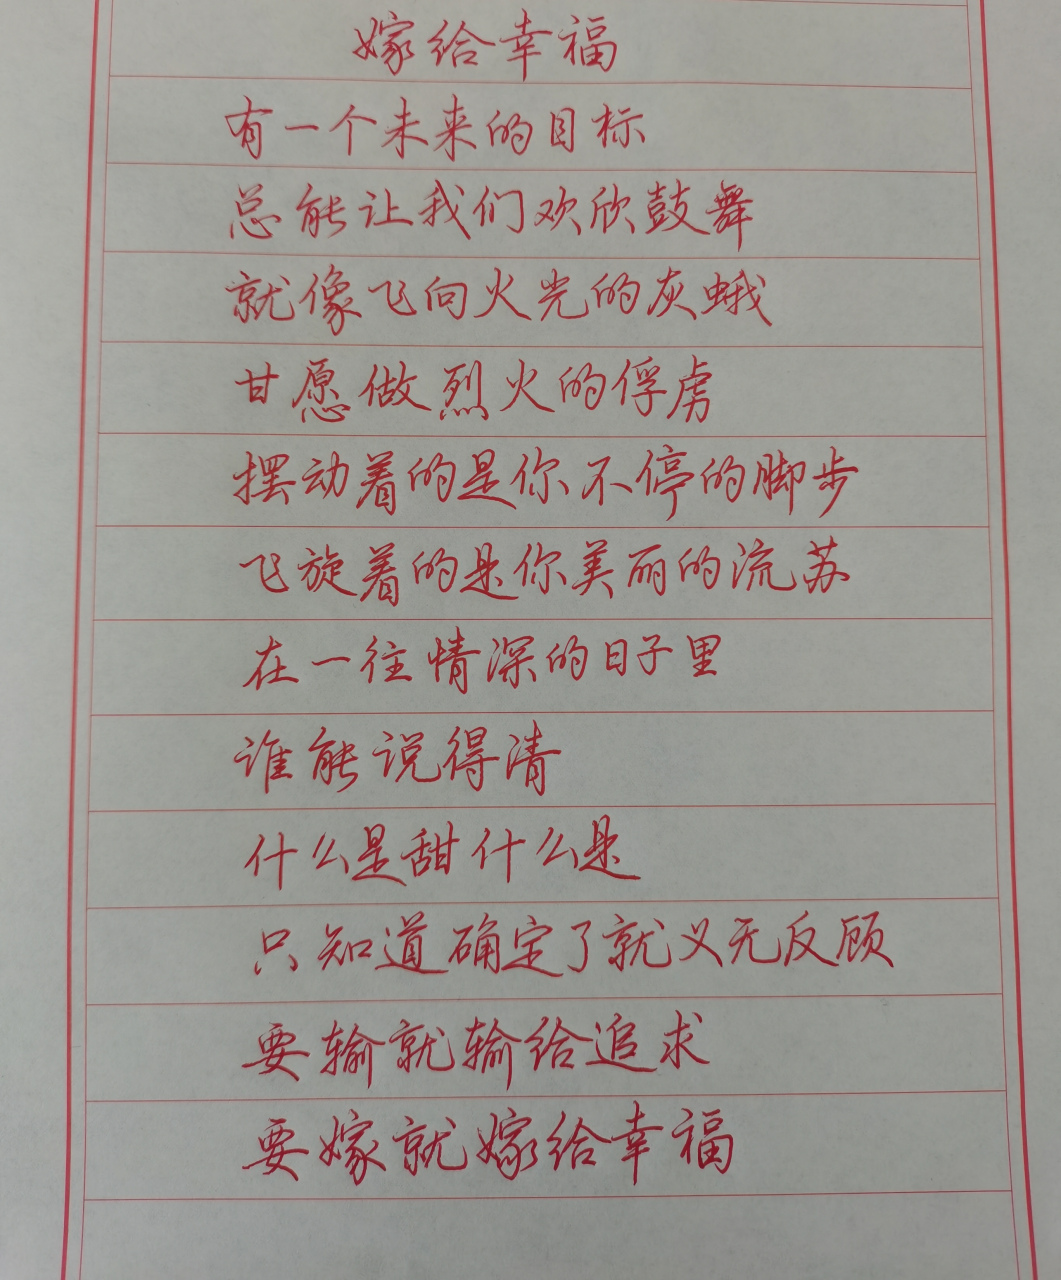 嫁给幸福
有一个未来的目标
总能让我们欢欣鼓舞
就像飞向火光的灰蛾
甘愿做烈火的俘虏
摆动着的是你不停的脚步
飞旋着的是你美丽的流苏
在一往情深的日子里
谁能说得清
什么是甜什么是
只知道确定了就义无反顾
要输就输给追求
要嫁就嫁给幸福